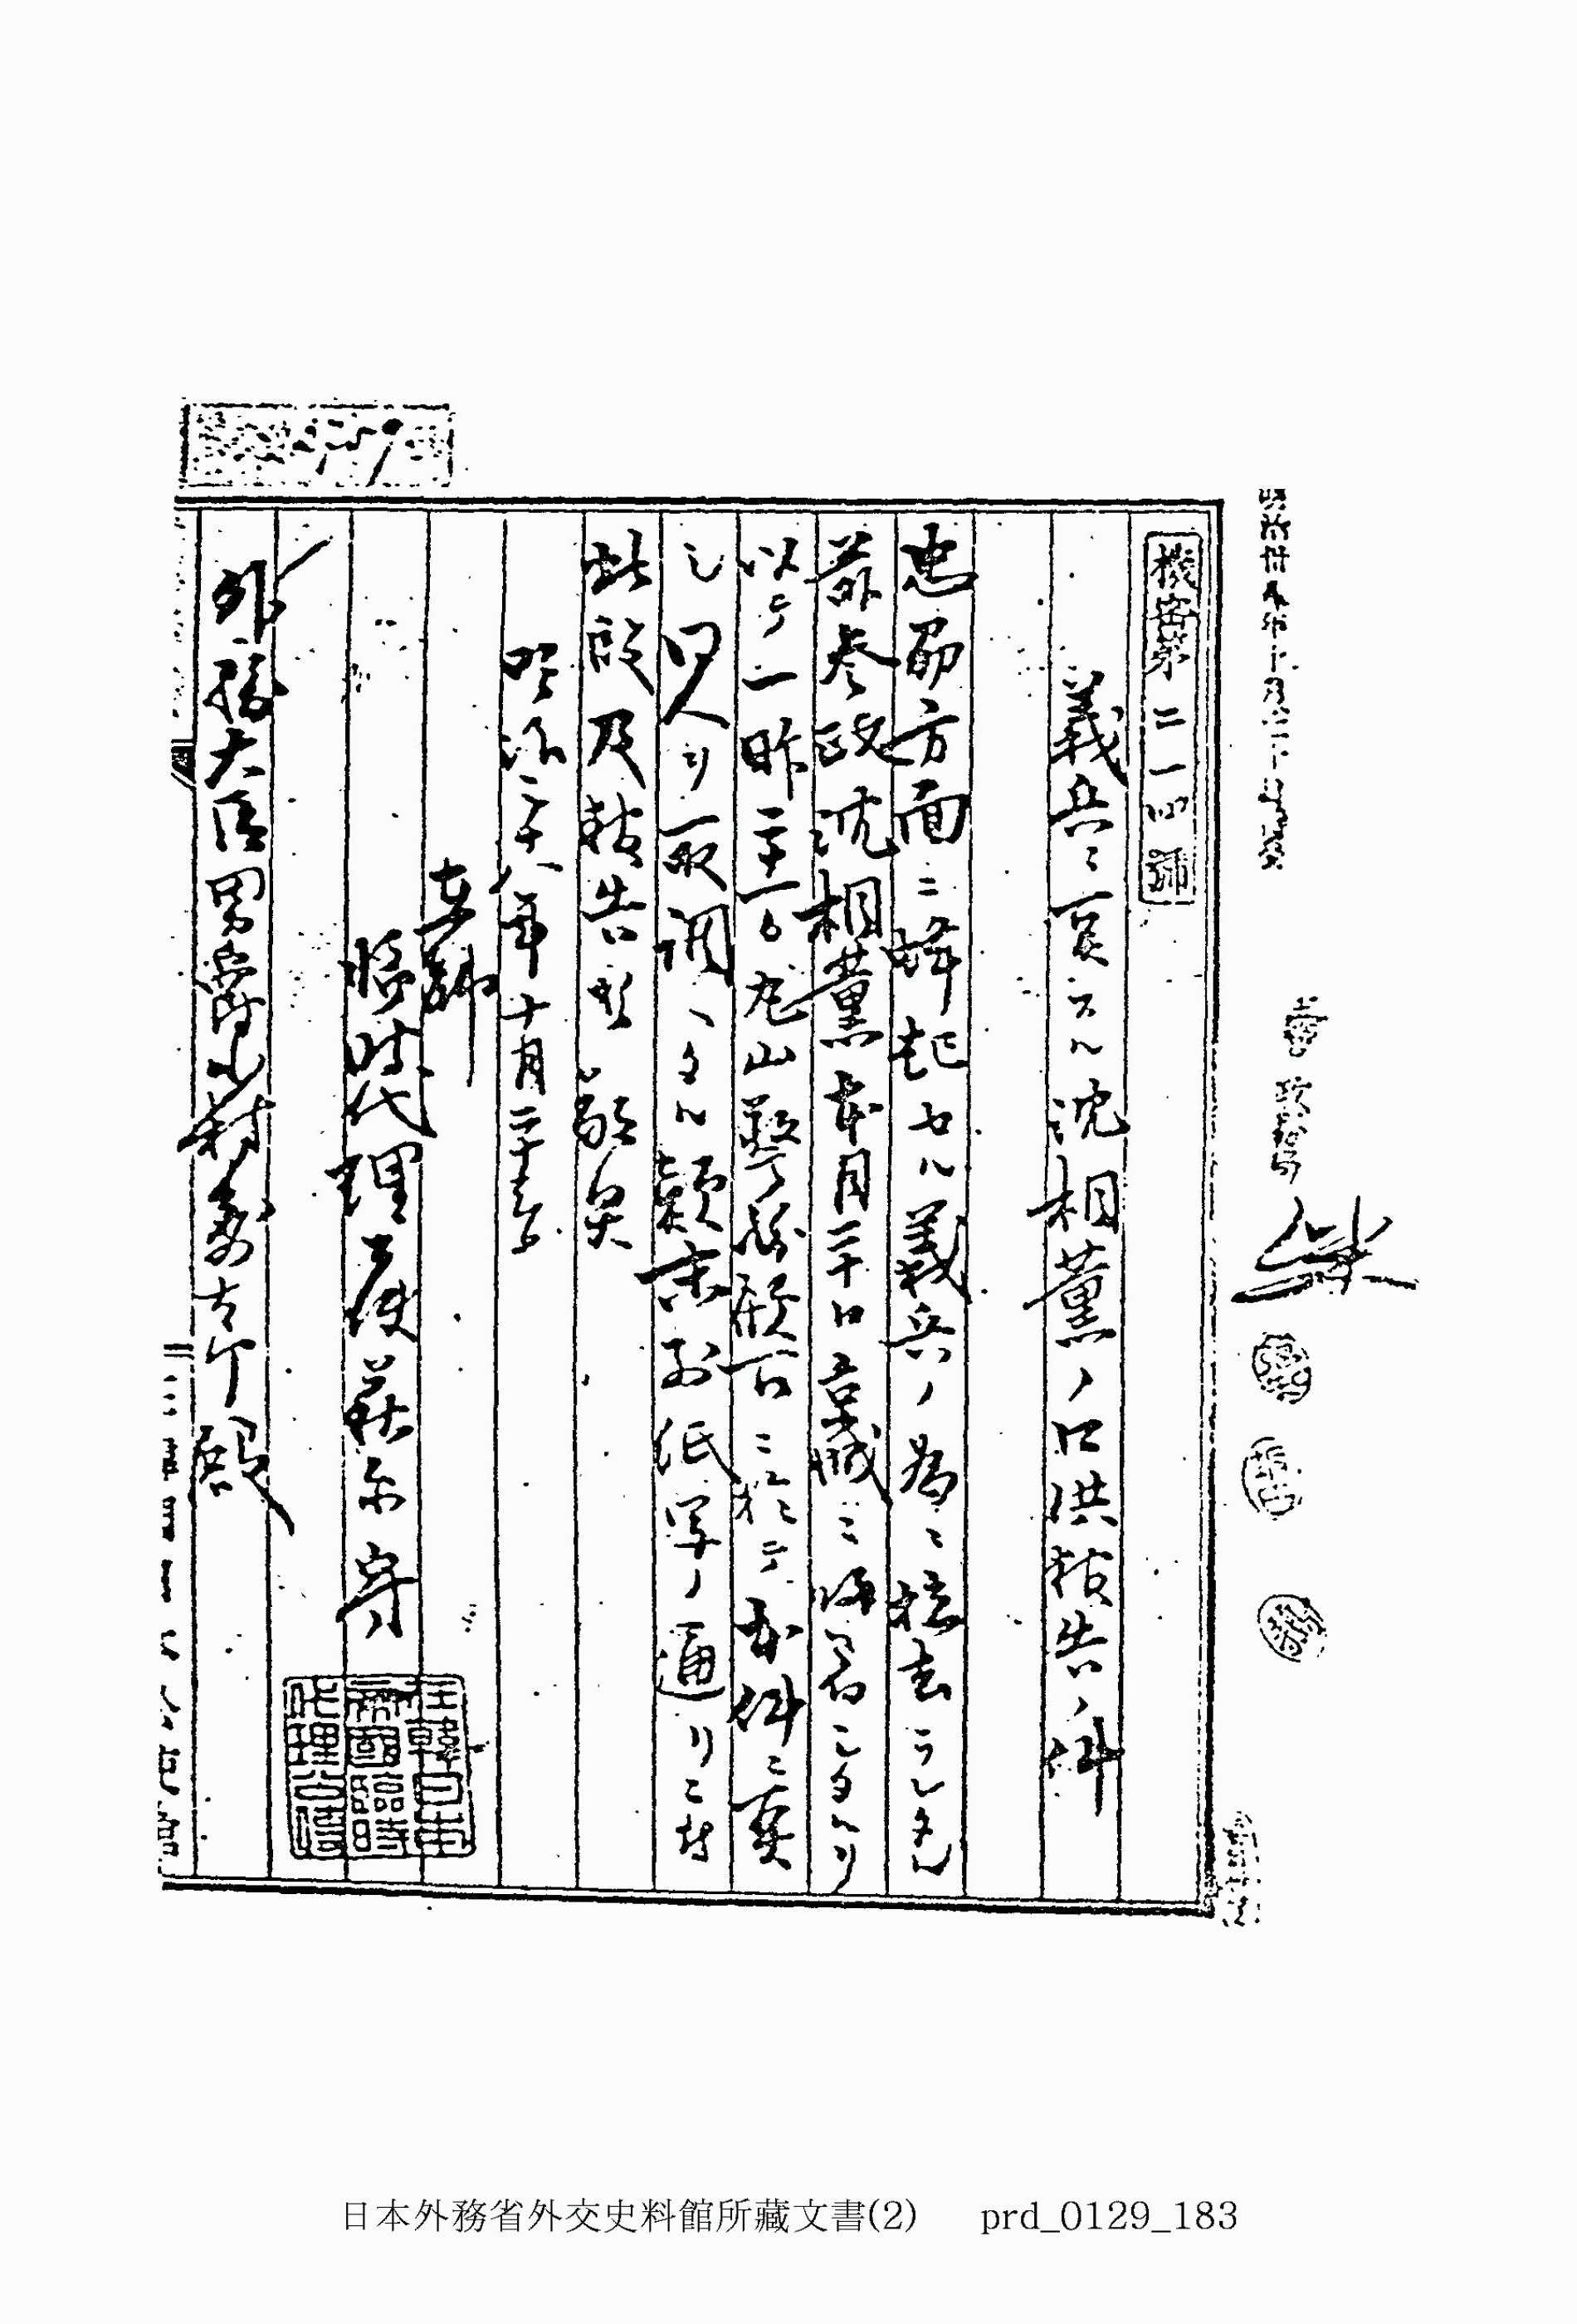 機密第二一四號
義兵ニ関スル沈相薫ノ口供報告ノ件
忠州方面ニ蜂起セル義兵ノ為ニ拉去ラレタル
前参政沈相薫本月二十日京城ニ帰着シタルヲ
以テ一昨二十一日丸山警務顧問ニ於テ本件ニ関
シ同人ヨリ取調ヘタル顛末別紙写ノ通リニ付
此段及報告候敬具
明治三十八年十月二十三日
在韓
臨時代理公使萩原守一
外務大臣男爵小村寿太郎殿
在韓日本
帝國臨時
代理公使
日本外務省外交史料館所藏文書(2) prd_0129_183